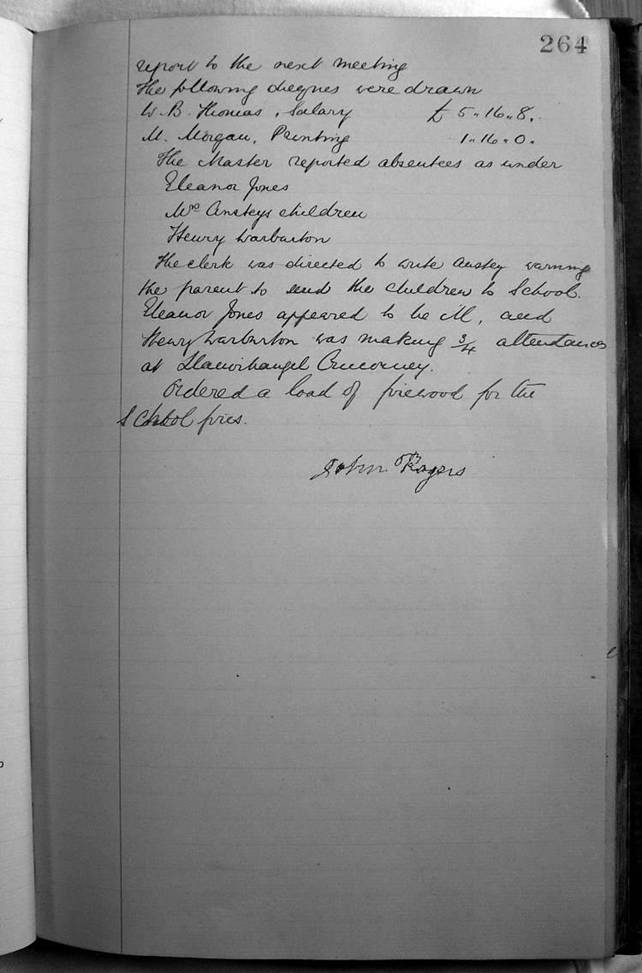 264
report to the next meeting
The following cheques were drawn
W. B. Thomas, Salary £ 5 " 16 " 8.
M. Morgan, Printing 1 " 16 " 0.
The Master reported absentees as under
Eleanor Jones
Mrs Ansteys children
Henry Warburton
The clerk was directed to write Anstey warning
the parent to send the children to School.
Eleanor Jones appeared to be ill, and
Henry Warburton was making 3/4 attendances
at Llanvihangel Crucorney.
Ordered a load of firewood for the
School fires.
John Rogers